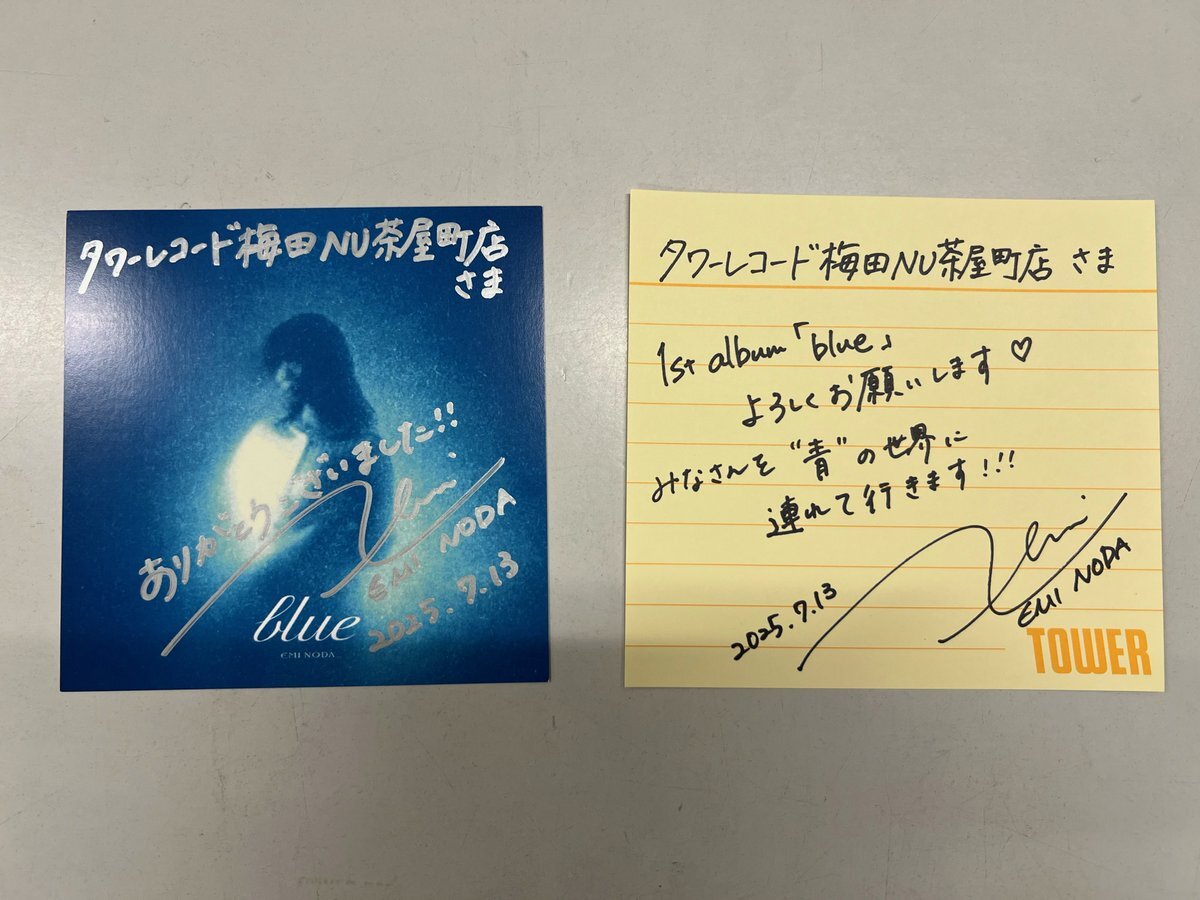 タワーレコード梅田NU茶屋町店
さま
ありがとうございました!!
Emi
EMI NODA
2025.7.13
blue
EMI NODA
タワーレコード梅田NU茶屋町店 さま
1st album「blue」
よろしくお願いします♡
みなさんを"青"の世界に
連れて行きます!!!
Emi
EMI NODA
2025.7.13
TOWER